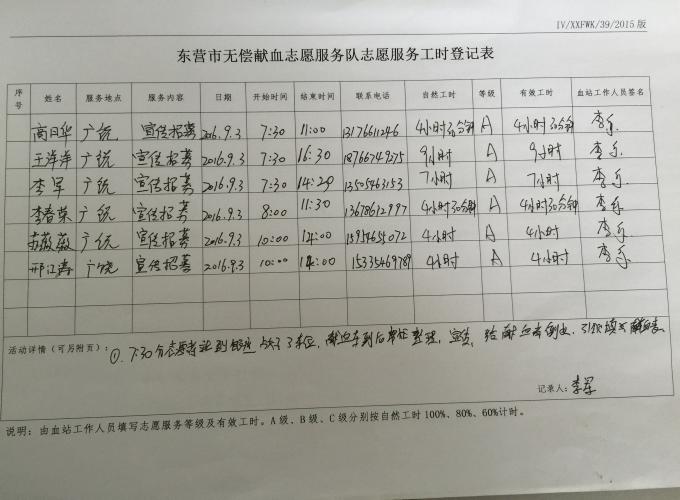 IV/XXFWK/39/2015版
东营市无偿献血志愿服务队志愿服务工时登记表
序号 姓名 服务地点 服务内容 日期 开始时间 结束时间 联系电话 自然工时 等级 有效工时 血站工作人员签名
高日华 广饶 宣传招募 2016.9.3 7:30 11:00 13176611246 4小时30分钟 A 4小时30分钟 李乐
王洋洋 广饶 宣传招募 2016.9.3 7:30 16:30 18766749275 9小时 A 9小时 李乐
李军 广饶 宣传招募 2016.9.3 7:30 14:29 13505463153 7小时 A 7小时 李乐
李春荣 广饶 宣传招募 2016.9.3 8:00 11:30 13678612997 4小时30分钟 A 4小时30分钟 李乐
苏薇薇 广饶 宣传招募 2016.9.3 10:00 14:00 15954655072 4小时 A 4小时 李乐
邢江涛 广饶 宣传招募 2016.9.3 10:00 14:00 15335469789 4小时 A 4小时 李乐
活动详情(可另附页): ①.7:30分志愿者 到 献血车到后 整理,宣传,给献血者倒水,引领填写献血表
记录人:李军
说明:由血站工作人员填写志愿服务等级及有效工时。A级、B级、C级分别按自然工时100%、80%、60%计时。